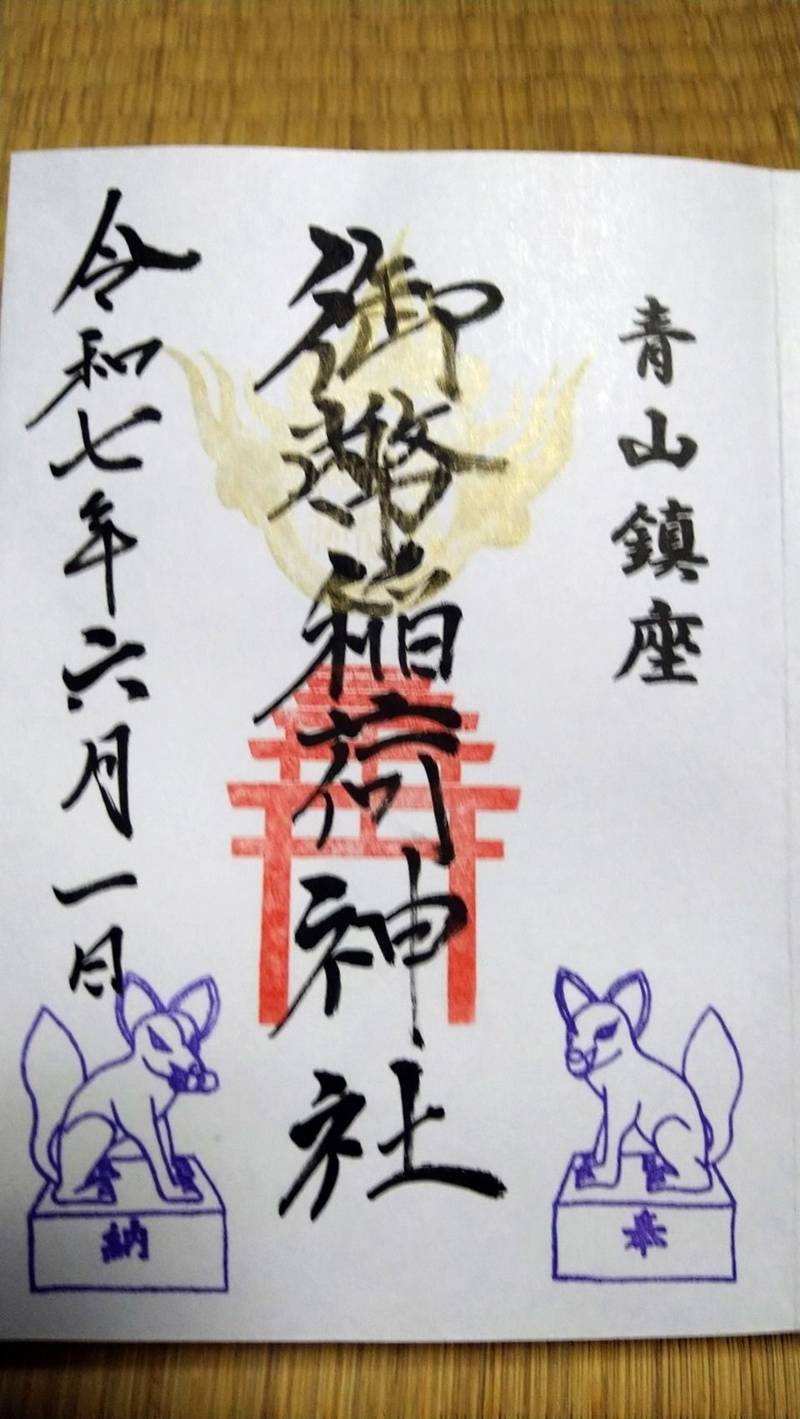 青山鎮座
御幣稲荷神社
令和七年六月一日
奉
納